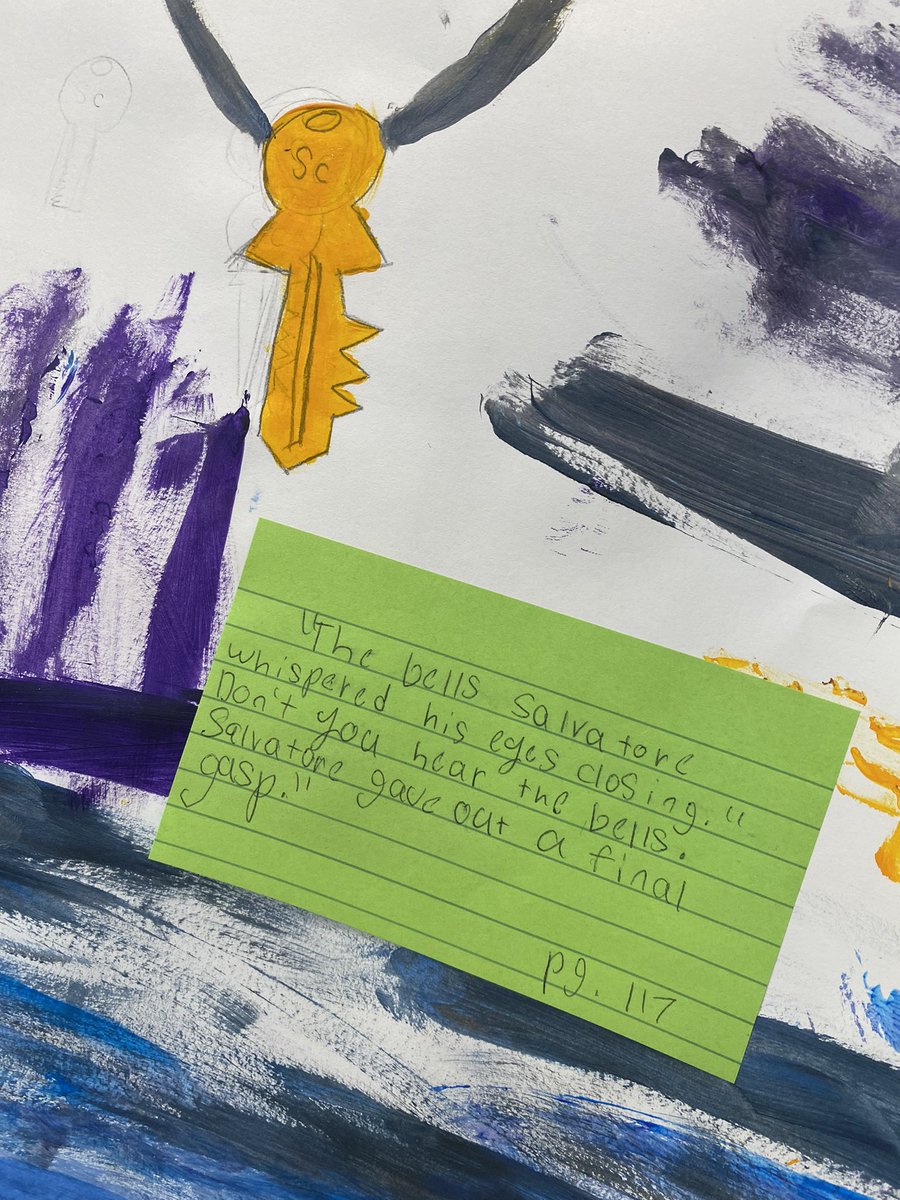 SC
SC
"The bells Salvatore
whispered his eyes closing."
Don't you hear the bells.
Salvatore gave out a final
gasp."
pg. 117